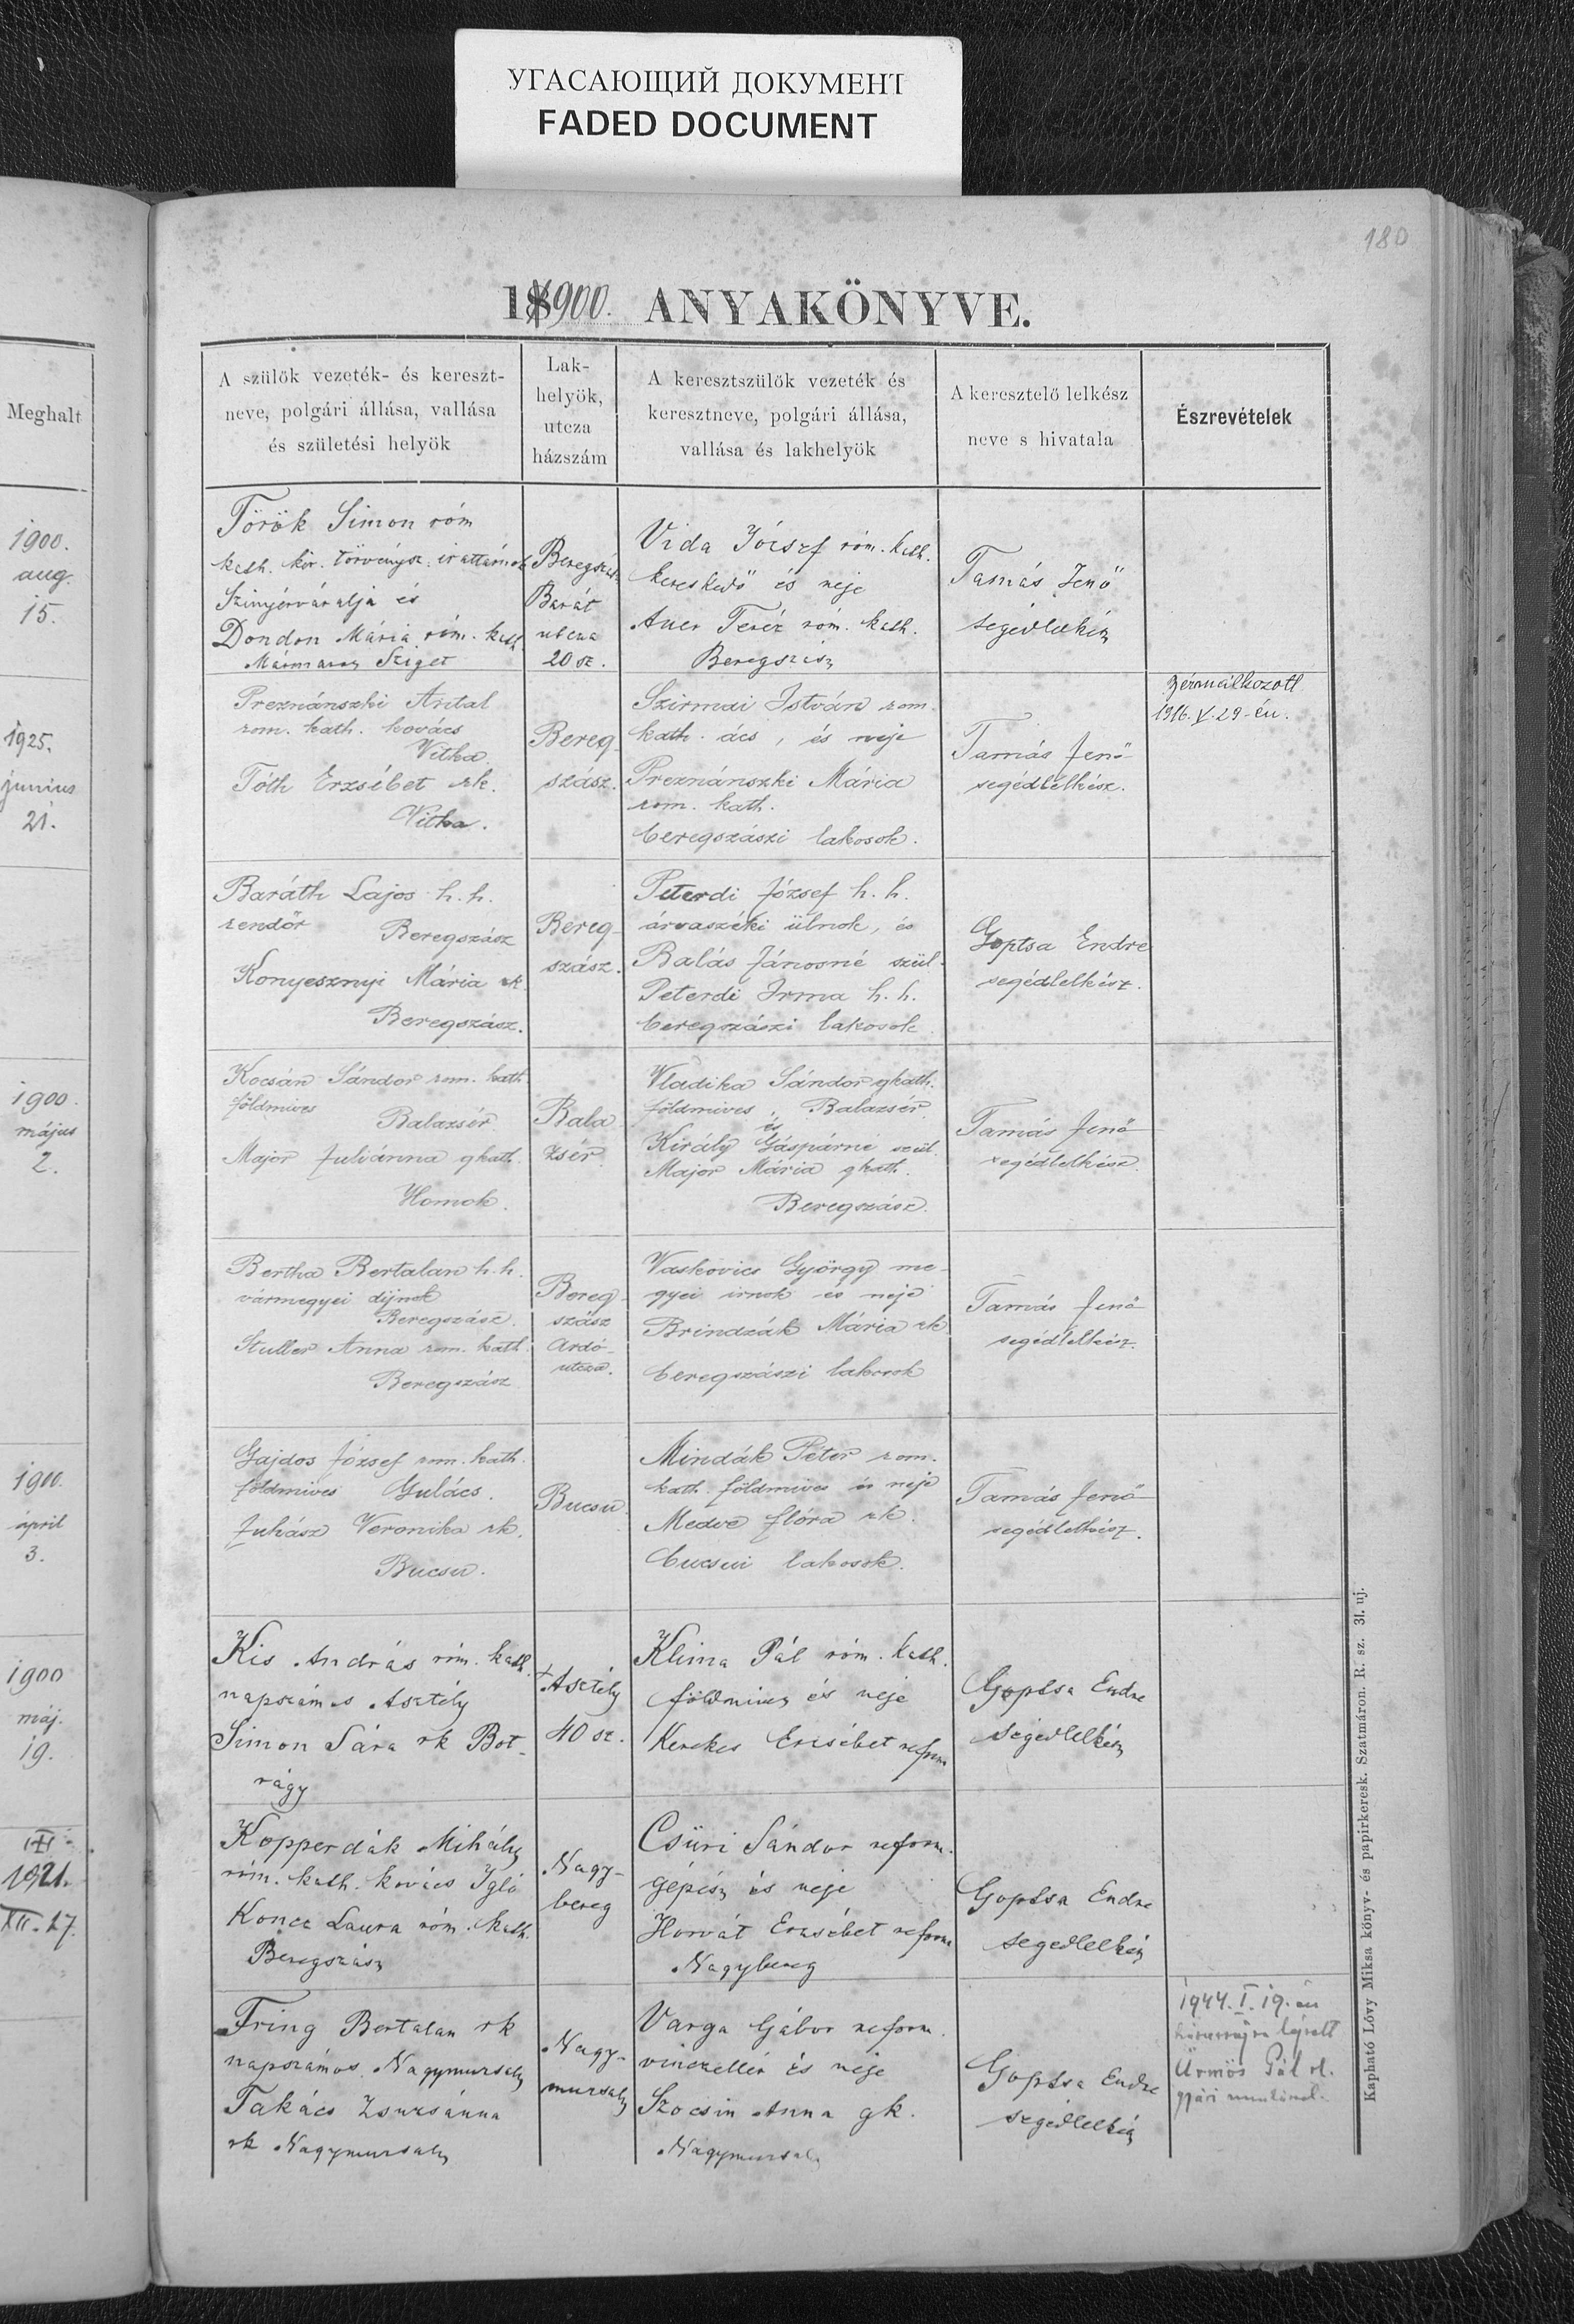 УГАСАЮЩИЙ ДОКУМЕНТ
FADED DOCUMENT
180
18900. ANYAKÖNYVE.
Meghalt
1900.
aug.
15.
1925.
junius
21.
1900.
május
2.
1900.
april
3.
1900
máj.
19.
1921.
XII. 27.
A szülök vezeték- és kereszt-
neve, polgári állása, vallása
és születési helyök
Lak-
helyök,
utcza
házszám
A keresztszülök vezeték és
keresztneve, polgári állása,
vallása és lakhelyök
A keresztelő lelkész
neve s hivatala
Észrevételek
Török Simon róm
kath. kir. törvénysz. irattárnok
Szinyérváralja és
Dondon Mária róm. kath.
Mármaros Sziget
Beregszász
Barát
utcza
20 sz.
Vida József róm. kath.
kereskedő és neje
Auer Teréz róm. kath.
Beregszász
Tamás Jenő
segédlelkész
Preznánszki Antal
rom. kath. kovács
Vitka
Tóth Erzsébet rk.
Vitka.
Bereg-
szász.
Szirmai István rom.
kath. ács, és neje
Preznánszki Mária
rom. kath.
beregszászi lakosok.
Tamás Jenő
segédlelkész.
Bérmálkozott
1916. V. 29-én.
Baráth Lajos h. h.
rendőr Beregszász
Konyesznyi Mária rk.
Beregszász.
Bereg-
szász.
Peterdi József h. h.
árvaszéki ülnok, és
Balás Jánosné szül.
Peterdi Irma h. h.
beregszászi lakosok
Goptsa Endre
segédlelkész.
Kocsán Sándor rom. kath
földmives
Balazsér.
Major Juliánna gkath.
Homok.
Bala
zsér.
Vladika Sándor gkath.
földmives, Balazsér.
és
Király Gáspárné szül.
Major Mária gkath.
Beregszász.
Tamás Jenő
segédlelkész.
Bertha Bertalan h. h.
vármegyei dijnok
Beregszász.
Stuller Anna rom. kath.
Beregszász
Bereg-
szász
Ardó-
utcza.
Vaskovics György me-
gyei irnok és neje
Brindzák Mária rk
beregszászi lakosok
Tamás Jenő
segédlelkész.
Gajdos József rom. kath.
földmives Gulács.
Juhász Veronika rk.
Bucsu.
Bucsu.
Mindák Péter rom.
kath. földmives és neje
Medve Flóra rk.
bucsui lakosok.
Tamás Jenő
segédlelkész.
Kis András róm. kath.
napszámos Asztély
Simon Sára rk Bot-
rágy
+Asztély
40 sz.
Klima Pál róm. kath.
földmives és neje
Kerekes Erzsébet reform
Goptsa Endre
segédlelkész
Kopperdák Mihály
róm. kath. kovács Igló
Koncz Laura róm. kath.
Beregszász
Nagy-
bereg
Csüri Sándor reform.
gépész és neje
Horvát Erzsébet reform
Nagybereg
Goptsa Endre
segédlelkész
Fring Bertalan rk
napszámos Nagymuzsaly
Takács Zsuzsánna
rk Nagymuzsaly
Nagy-
muzsaly
Varga Gábor reform.
vinczellér és neje
Szocsin Anna gk.
Nagymuzsaly
Goptsa Endre
segédlelkész
1944. I. 19. én
házasságra lépett
Ürmös Pál
gyári
Kapható Lővy Miksa könyv- és papirkeresk. Szatmáron. R. sz. 31. uj.